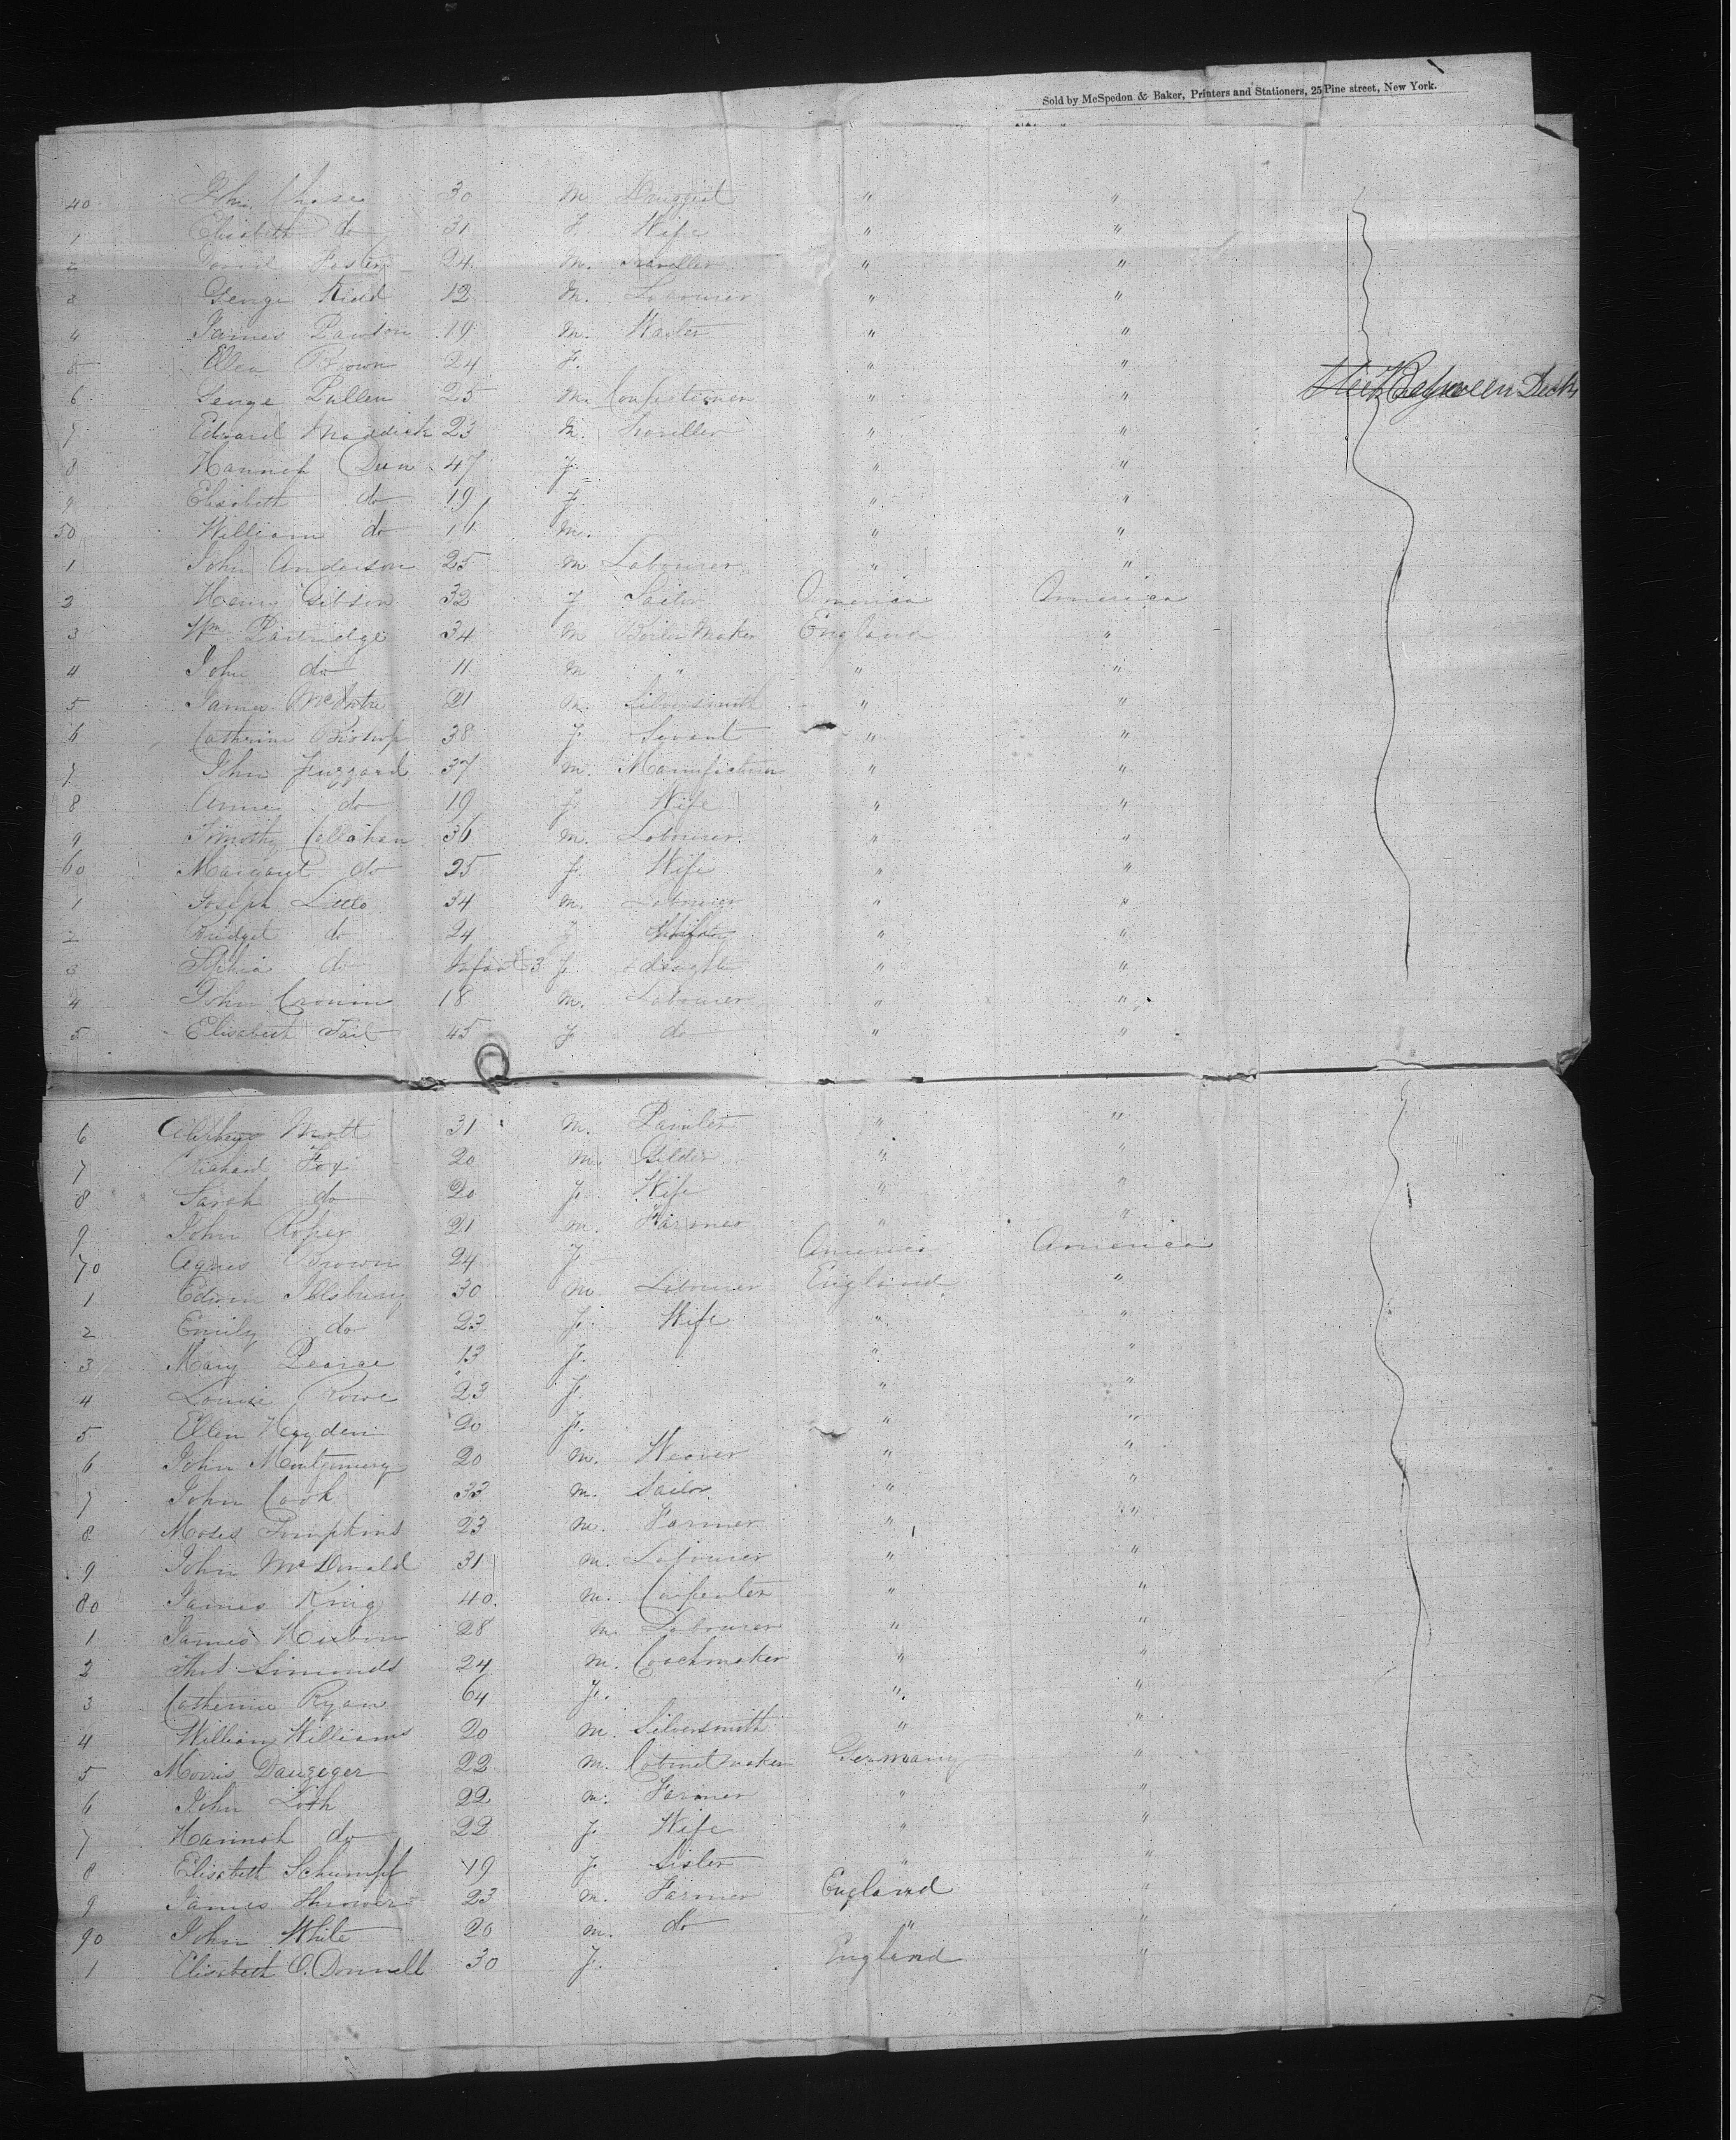 Sold by McSpedon & Baker, Printers and Stationers, 25 Pine street, New York.
40 John Chase 30 m. Druggist " "
1 Elisabeth do 31 f. Wife " "
2 David Foster 24. m. Traveller " "
3 George Kidd 12 m. Labourer " "
4 James Dawson 19 m. Waiter " "
5 Ellen Brown 24 f. " "
6 George Pullen 25 m. Confectioner " " Between Decks
7 Edward 23 m. Traveller " "
8 Hannah Dun 47 f. " "
9 Elisabeth do 19 f. " "
50 William do 16 m. " "
1 John Anderson 25 m Labourer " "
2 Henry Gibson 32 f Sailor America America
3 Wm Partridge 34 m Boiler Maker England "
4 John do 11 m " " "
5 James McIntire 21 m. Silversmith " "
6 Catherine Bishop 38 f. Servant " "
7 John 37 m. " "
8 Anne do 19 f. Wife " "
9 Timothy Callahan 36 m. Labourer. " "
60 Margaret do 25 f. Wife " "
1 Joseph Little 34 m. Labourer " "
2 Bridget do 24 f " "
3 do Infant 3 f. " "
4 John Cronin 18 m. Labourer " "
5 Elisabeth Tait 45 f do " "
6 Mott 31 m. Painter " "
7 Richard Fox 20 m. Gilder " "
8 Sarah do 20 f. Wife " "
9 John Roper 21 m. Farmer " "
70 Agnes Brown 24 f. America America
1 Edwin Illsbury 30 m. Labourer England "
2 Emily do 23 f. Wife " "
3 Mary Pearce 13 f. " "
4 Louisa Rowe 23 f. " "
5 Ellen Hayden 20 f. " "
6 John Montgomery 20 m. Weaver " "
7 John Cook 33 m. Sailor " "
8 Moses Tompkins 23 m. Farmer " "
9 John McDonald 31 m. Labourer " "
80 James King 40. m. Carpenter " "
1 James 28 m. Labourer " "
2 Thos Simonds 24 m. Coachmaker " "
3 Catherine Ryan 64 f. " "
4 William Williams 20 m. Silversmith " "
5 Morris Danzeger 22 m. Cabinet maker Germany "
6 John 22 m. Farmer " "
7 Hannah do 22 f. Wife " "
8 Elisabeth Schumpf 19 f. Sister " "
9 James Thrower 23 m. Farmer England "
90 John White 20 m. do " "
1 Elisabeth O.Donnell 30 f. England "